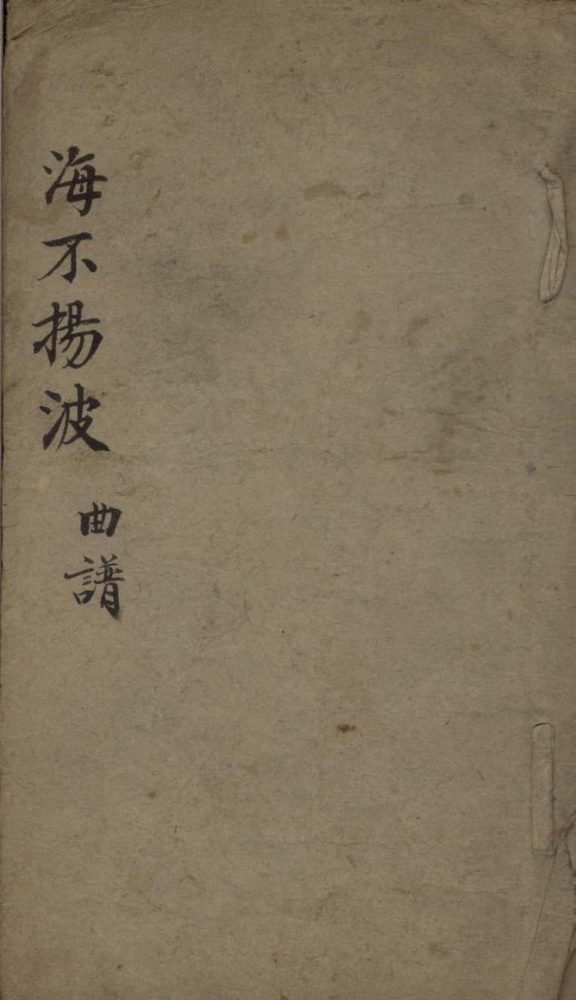 海不揚波
曲譜